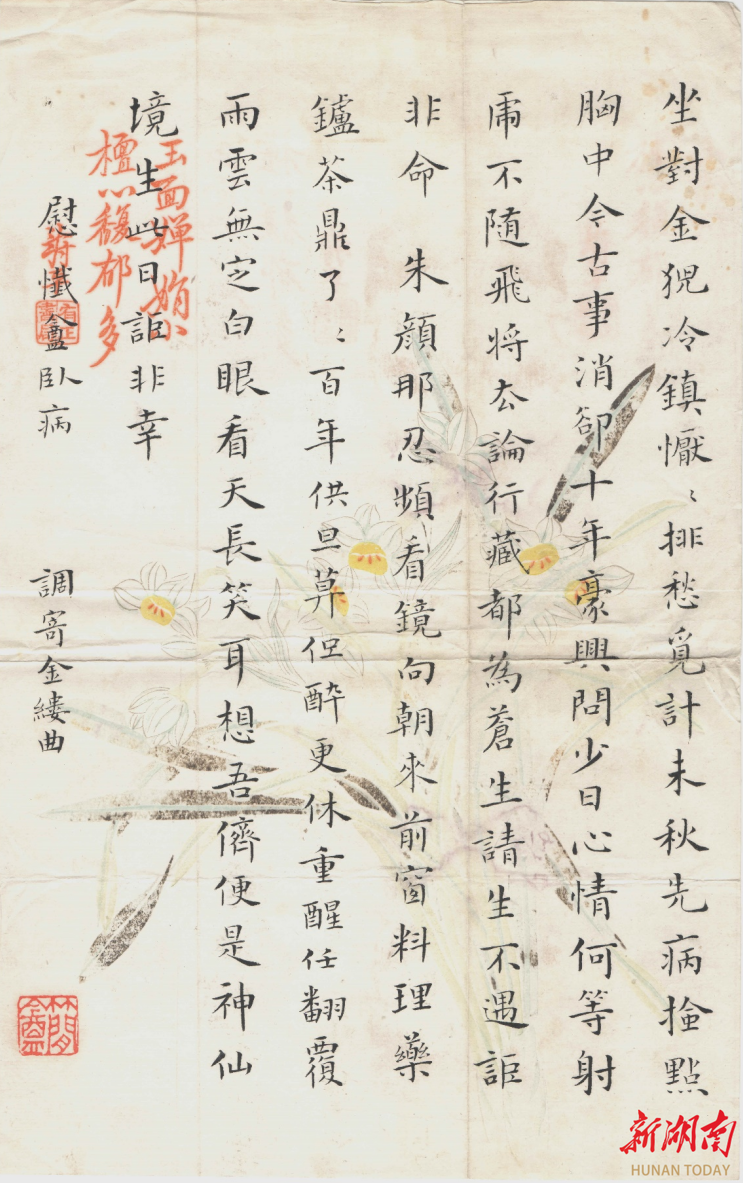 坐對金猊冷鎮懨〻排愁覓計未秋先病撿點
胸中今古事消卻十年豪興問少日心情何等射
虎不隨飛將去論行藏都為蒼生請生不遇詎
非命　朱顏那忍頻看鏡向朝來前窗料理藥
鑪茶鼎了〻百年供旦莫但醉更休重醒任翻覆
雨雲無定白眼看天長笑耳想吾儕便是神仙
境生此日詎非幸
慰懺盦臥病
調寄金縷曲
玉面嬋娟小
檀心馥郁多
新湖南
HUNAN TODAY